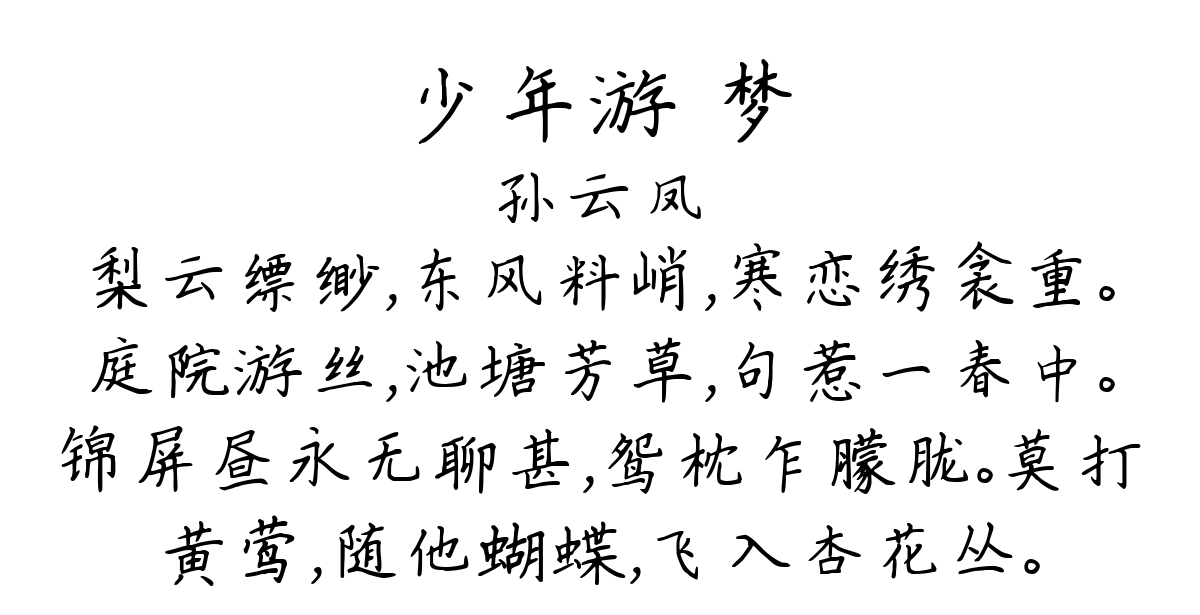 少年游 梦
孙云凤
梨云缥缈,东风料峭,寒恋绣衾重。
庭院游丝,池塘芳草,句惹一春中。
锦屏昼永无聊甚,鸳枕乍朦胧。莫打
黄莺,随他蝴蝶,飞入杏花丛。